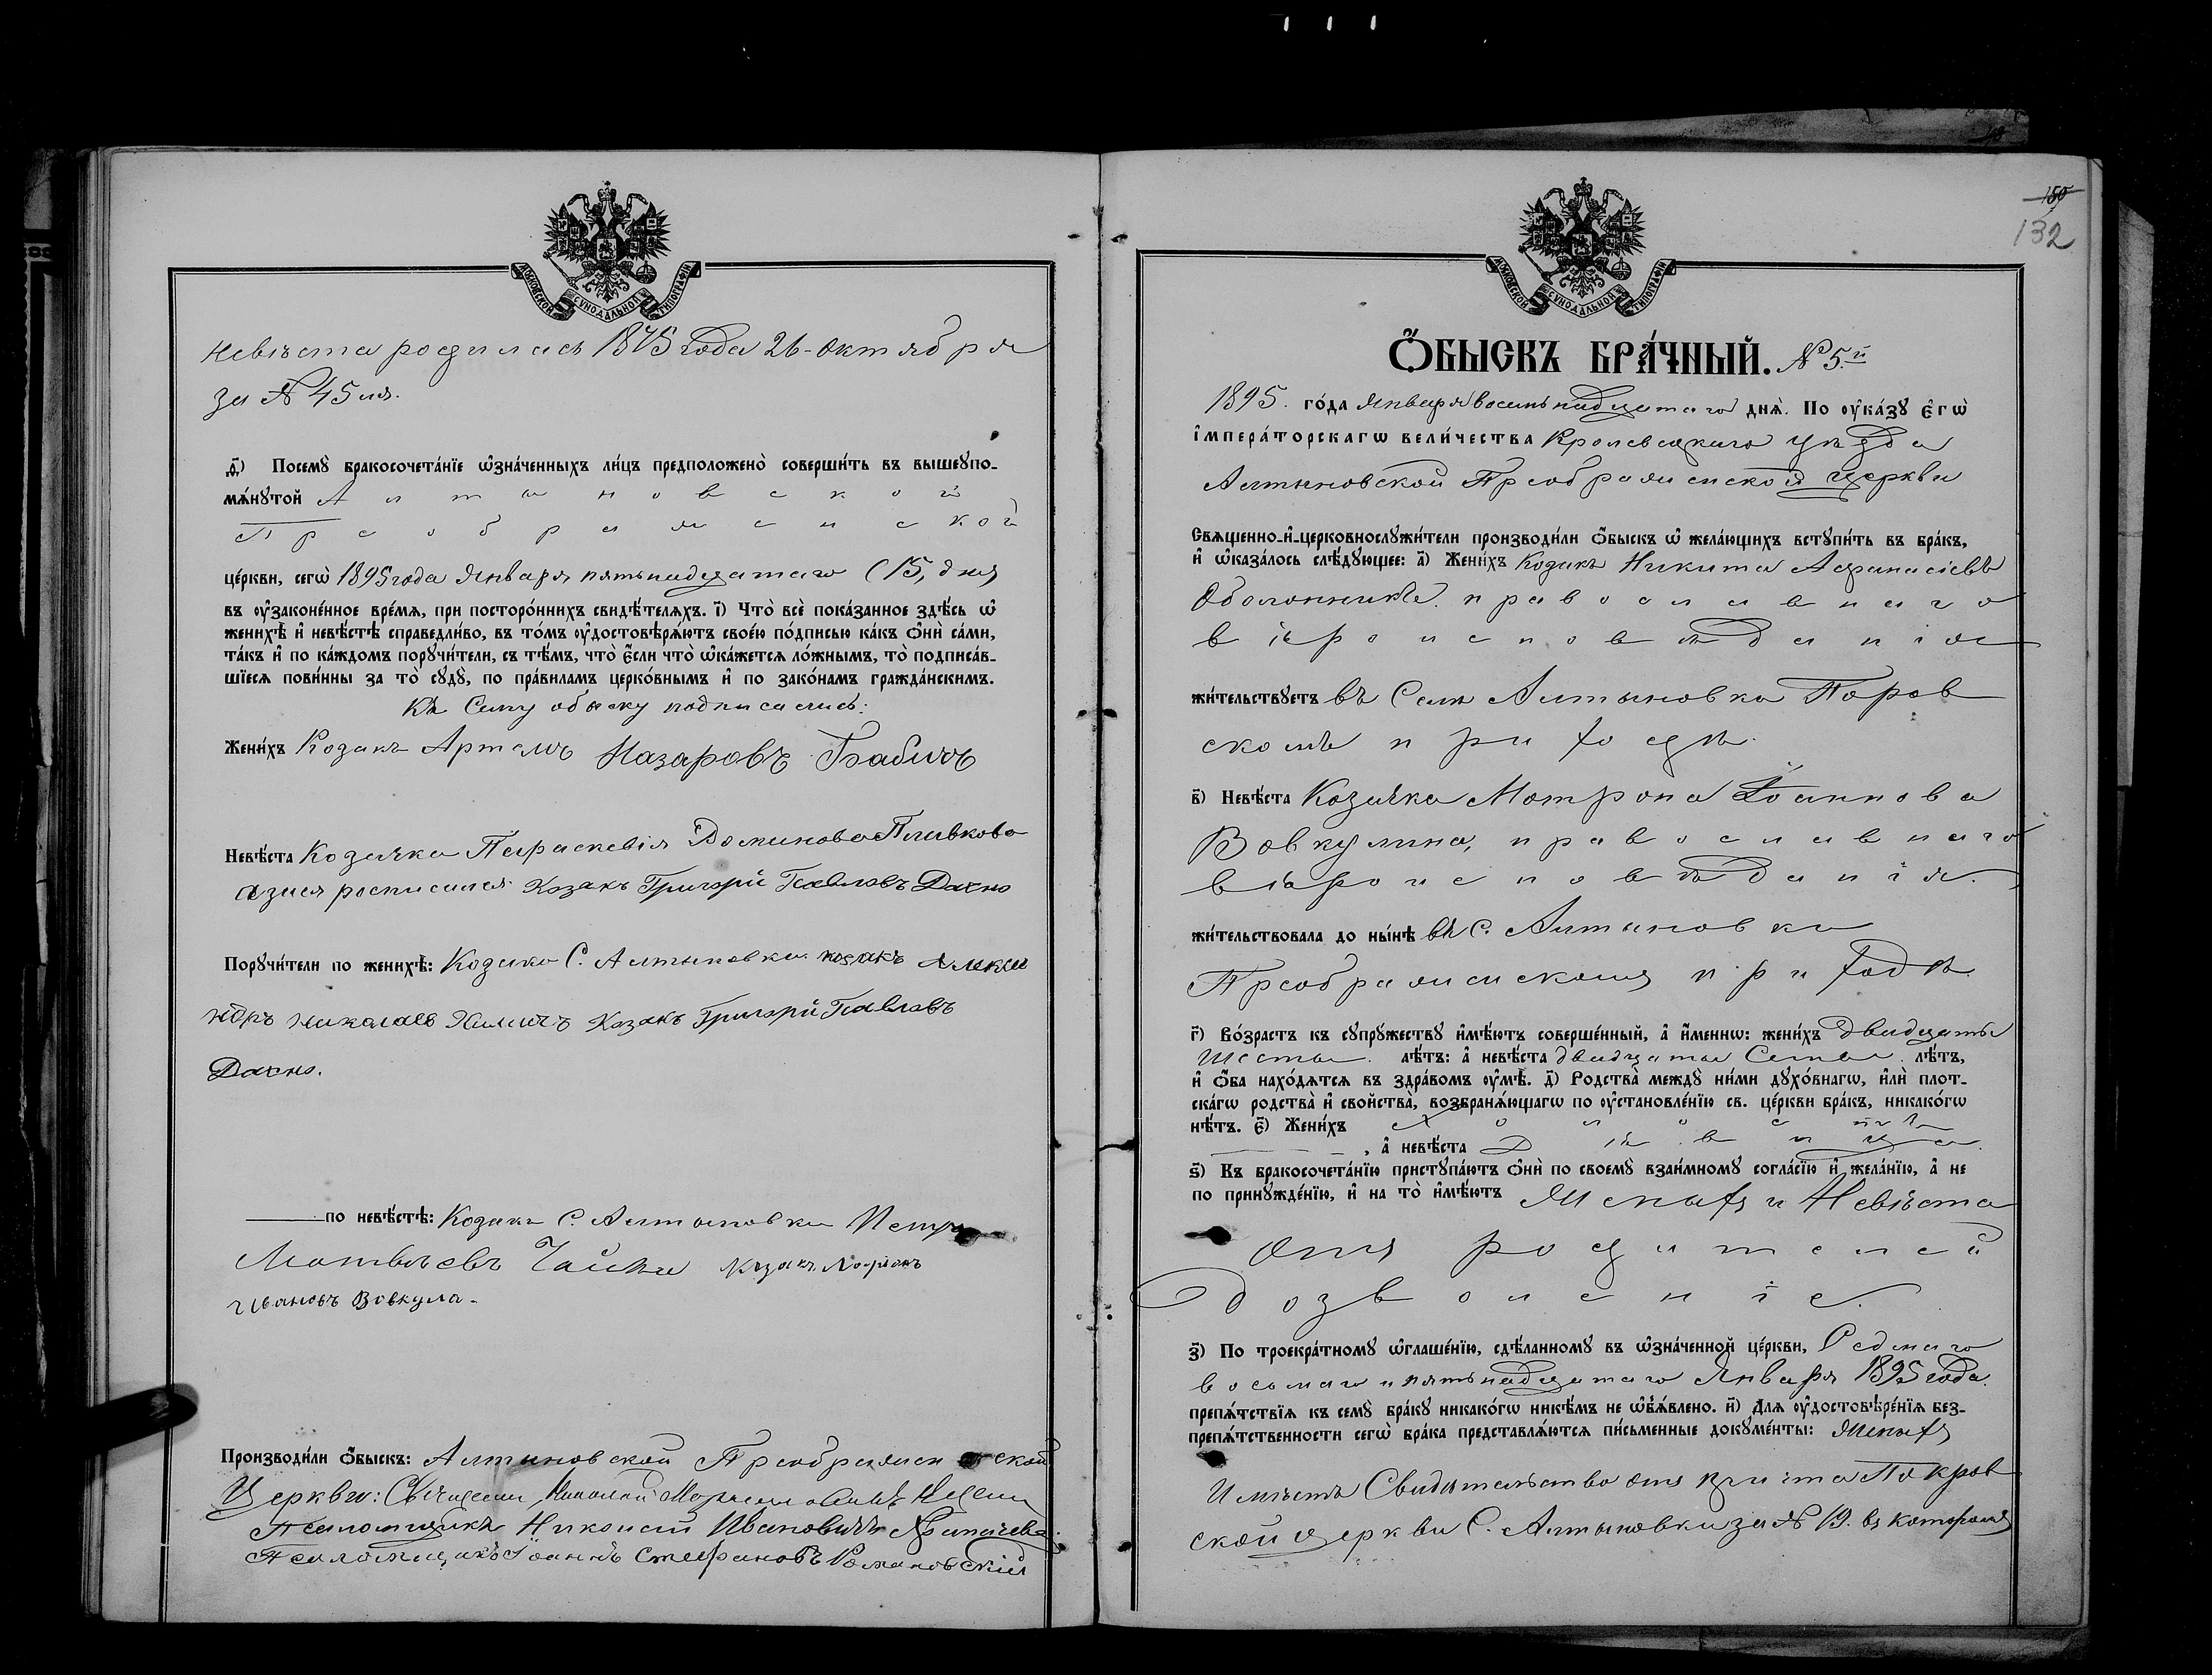 МОСКОВСКОЙ СѴНОДАЛЬНОЙ ТИПОГРАФІИ
невѣста родилась 1875 года 26-Октября
за № 45мъ.
д҃) Посемꙋ̀ бракосочета́нїе ѡ҆зна́ченныхъ ли́цъ предположено̀ соверши́ть въ вышеꙋпо-
мѧ́нꙋтой Алтыновской
Преображенской
це́ркви, сегѡ̀ 1895 года Января пятьнадцатаго (15, дня
въ ᲂу҆законе́нное вре́мѧ, при посторо́ннихъ свидѣ́телѧхъ. і҃) Что̀ всѐ пока́занное здѣ́сь ѡ҆
женихѣ̀ и҆ невѣ́стѣ справедли́во, въ то́мъ ᲂу҆достовѣрѧ́ютъ свое́ю по́дписью ка́къ ѻ҆нѝ са́ми,
та́къ и҆ по ка́ждомъ порꙋчи́тели, съ тѣ́мъ, что̀ є҆́сли что̀ ѡ҆ка́жетсѧ ло́жнымъ, то̀ подписа́в-
шїесѧ пови́нны за то̀ сꙋдꙋ̀, по пра́виламъ церко́внымъ и҆ по зако́намъ гражда́нскимъ.
Къ Сему обыску подписались:
Жени́хъ Козакъ Артемъ Назаровъ Бабичъ
Невѣ́ста Козачка Параскевія Доминова Пливкова
а за нея росписался Козакъ Григорій Павловъ Дахно
Порꙋчи́тели по женихѣ̀: Козаки С. Алтыновки козакъ Алекса
ндръ Николаевъ Козакъ Григорій Павловъ
Дахно.
по невѣ́стѣ: Козаки С. Алтыновки Петръ
Матвѣевъ Чайка Козакъ
Ивановъ Вовкула.
Производи́ли ѻ҆́быскъ: Алтыновской Преображенской
Церкви: Священникъ Николай
Псаломщикъ Николай Ивановичъ
Псаломщикъ Іоаннъ Стефановъ Романовскій
150
132
МОСКОВСКОЙ СѴНОДАЛЬНОЙ ТИПОГРАФІИ
Ѻ҆́БЫСКЪ БРА́ЧНЫЙ. № 5.й
1895. го́да Января восемьнадцатаго днѧ̀. По ᲂу҆ка́зꙋ Є҆гѡ̀
І҆мпера́торскагѡ вели́чества Кролевецкаго уѣзда
Алтыновской Преображенской Церкви
Сващенно-и҆-церковнослꙋжи́тели производи́ли ѻ҆́быскъ ѡ҆ жела́ющихъ встꙋпи́ть въ бра́къ,
и҆ ѡ҆каза́лось слѣ́дꙋющее: а҃) Жени́хъ Козакъ Никита Афанасіевъ
Оболонникъ. православнаго
вѣроисповѣданія
жи́тельствꙋетъ въ Селѣ Алтыновка Покров
скомъ приходѣ.
в҃) Невѣ́ста Козачка Мотрона Іоаннова
Вовкулина, православнаго
вѣроисповѣданія.
жи́тельствовала до ны́нѣ въ с. Алтыновки
Преображенскомъ приходѣ.
г҃) Во́зрастъ къ сꙋпрꙋ́жествꙋ и҆мѣ́ютъ соверше́нный, а҆ и҆́меннѡ: жени́хъ двадцать
шесть. лѣ́тъ: а҆ невѣ́ста двадцать Семь. лѣ́тъ,
и҆ ѻ҆́ба нахо́дѧтсѧ въ здра́вомъ ᲂу҆мѣ̀. д҃) Родства̀ междꙋ̀ ни́ми дꙋхо́внагѡ, и҆лѝ плот-
ска́гѡ родства̀ и҆ свойства̀, возбранѧ́ющагѡ по ᲂу҆становле́нїю св. це́ркви бра́къ, никако́гѡ
нѣ́тъ. є҃) Жени́хъ холостъ
, а҆ невѣ́ста Дѣвица.
ѕ҃) Къ бракосочета́нїю пристꙋпа́ютъ ѻ҆нѝ по своемꙋ̀ взаи́мномꙋ согла́сїю и҆ жела́нїю, а҆ не
по принꙋжде́нїю, и҆ на то̀ и҆мѣ́ютъ Женихъ и Невѣста
отъ родителей
дозволеніе.
з҃) По троекра́тномꙋ ѡ҆глаше́нїю, сдѣ́ланномꙋ въ ѡ҆зна́ченной це́ркви, Седмаго
восьмаго и пятьнадцатаго Января 1895 года.
препѧ́тствїѧ къ семꙋ̀ бра́кꙋ никако́гѡ никѣ́мъ не ѡ҆б̾ѧ́влено. и҃) Длѧ ᲂу҆достовѣре́нїѧ без-
препѧ́тственности сегѡ̀ бра́ка представлѧ́ютсѧ пи́сьменные докꙋме́нты: Женихъ
Имѣетъ Свидѣтельство отъ причта Покров
ской церкви С. Алтыновки за № 19. въ которомъ